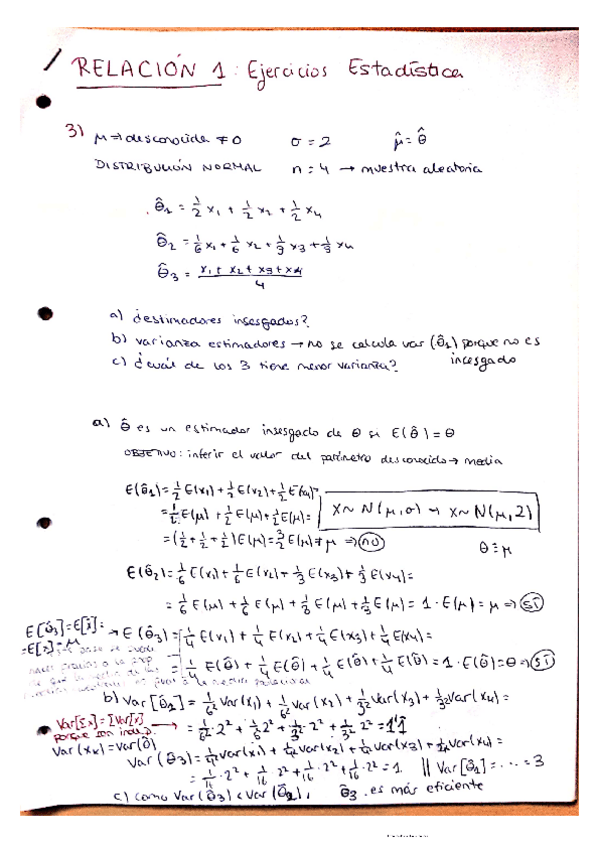 RELACIÓN 1: Ejercicios Estadística
3) μ ⇒ desconocida ≠ 0 σ = 2 μ̂ = θ̂
DISTRIBUCIÓN NORMAL n = 4 → muestra aleatoria
θ̂1 = 1/2 x1 + 1/2 x2 + 1/2 x4
θ̂2 = 1/6 x1 + 1/6 x2 + 1/3 x3 + 1/3 x4
θ̂3 = (x1 + x2 + x3 + x4)/4
a) ¿estimadores insesgados?
b) varianza estimadores → no se calcula var (θ̂1) porque no es insesgado
c) ¿cuál de los 3 tiene menor varianza?
a) θ̂ es un estimador insesgado de θ si E(θ̂) = θ
OBJETIVO: inferir el valor del parámetro desconocido → media
E(θ̂1) = 1/2 E(x1) + 1/2 E(x2) + 1/2 E(x4) =
= 1/2 E(μ) + 1/2 E(μ) + 1/2 E(μ) =
X ~ N(μ, σ) → X ~ N(μ, 2)
= (1/2 + 1/2 + 1/2) E(μ) = 3/2 E(μ) ≠ μ ⇒ no
θ = μ
E(θ̂2) = 1/6 E(x1) + 1/6 E(x2) + 1/3 E(x3) + 1/3 E(x4) =
= 1/6 E(μ) + 1/6 E(μ) + 1/3 E(μ) + 1/3 E(μ) = 1 · E(μ) = μ ⇒ sí
E[θ̂3] = E[x̄] =
= E[x] = μ
→ E(θ̂3) = 1/4 E(x1) + 1/4 E(x2) + 1/4 E(x3) + 1/4 E(x4) =
= 1/4 E(θ̂) + 1/4 E(θ̂) + 1/4 E(θ̂) + 1/4 E(θ̂) = 1 · E(θ̂) = θ ⇒ sí
b) Var[θ̂2] = 1/6² Var(x1) + 1/6² Var(x2) + 1/3² Var(x3) + 1/3² Var(x4) =
Var[Σx] = ΣVar[x]
porque son indep.
→ = 1/6² · 2² + 1/6² · 2² + 1/3² · 2² + 1/3² · 2² = 1'1̂
Var(xk) = Var(θ̂)
Var(θ̂3) = 1/4² Var(x1) + 1/4² Var(x2) + 1/4² Var(x3) + 1/4² Var(x4) =
= 1/16 · 2² + 1/16 · 2² + 1/16 · 2² + 1/16 · 2² = 1 || Var[θ̂1] = ... = 3
c) como Var(θ̂3) < Var(θ̂2), θ̂3 es más eficiente